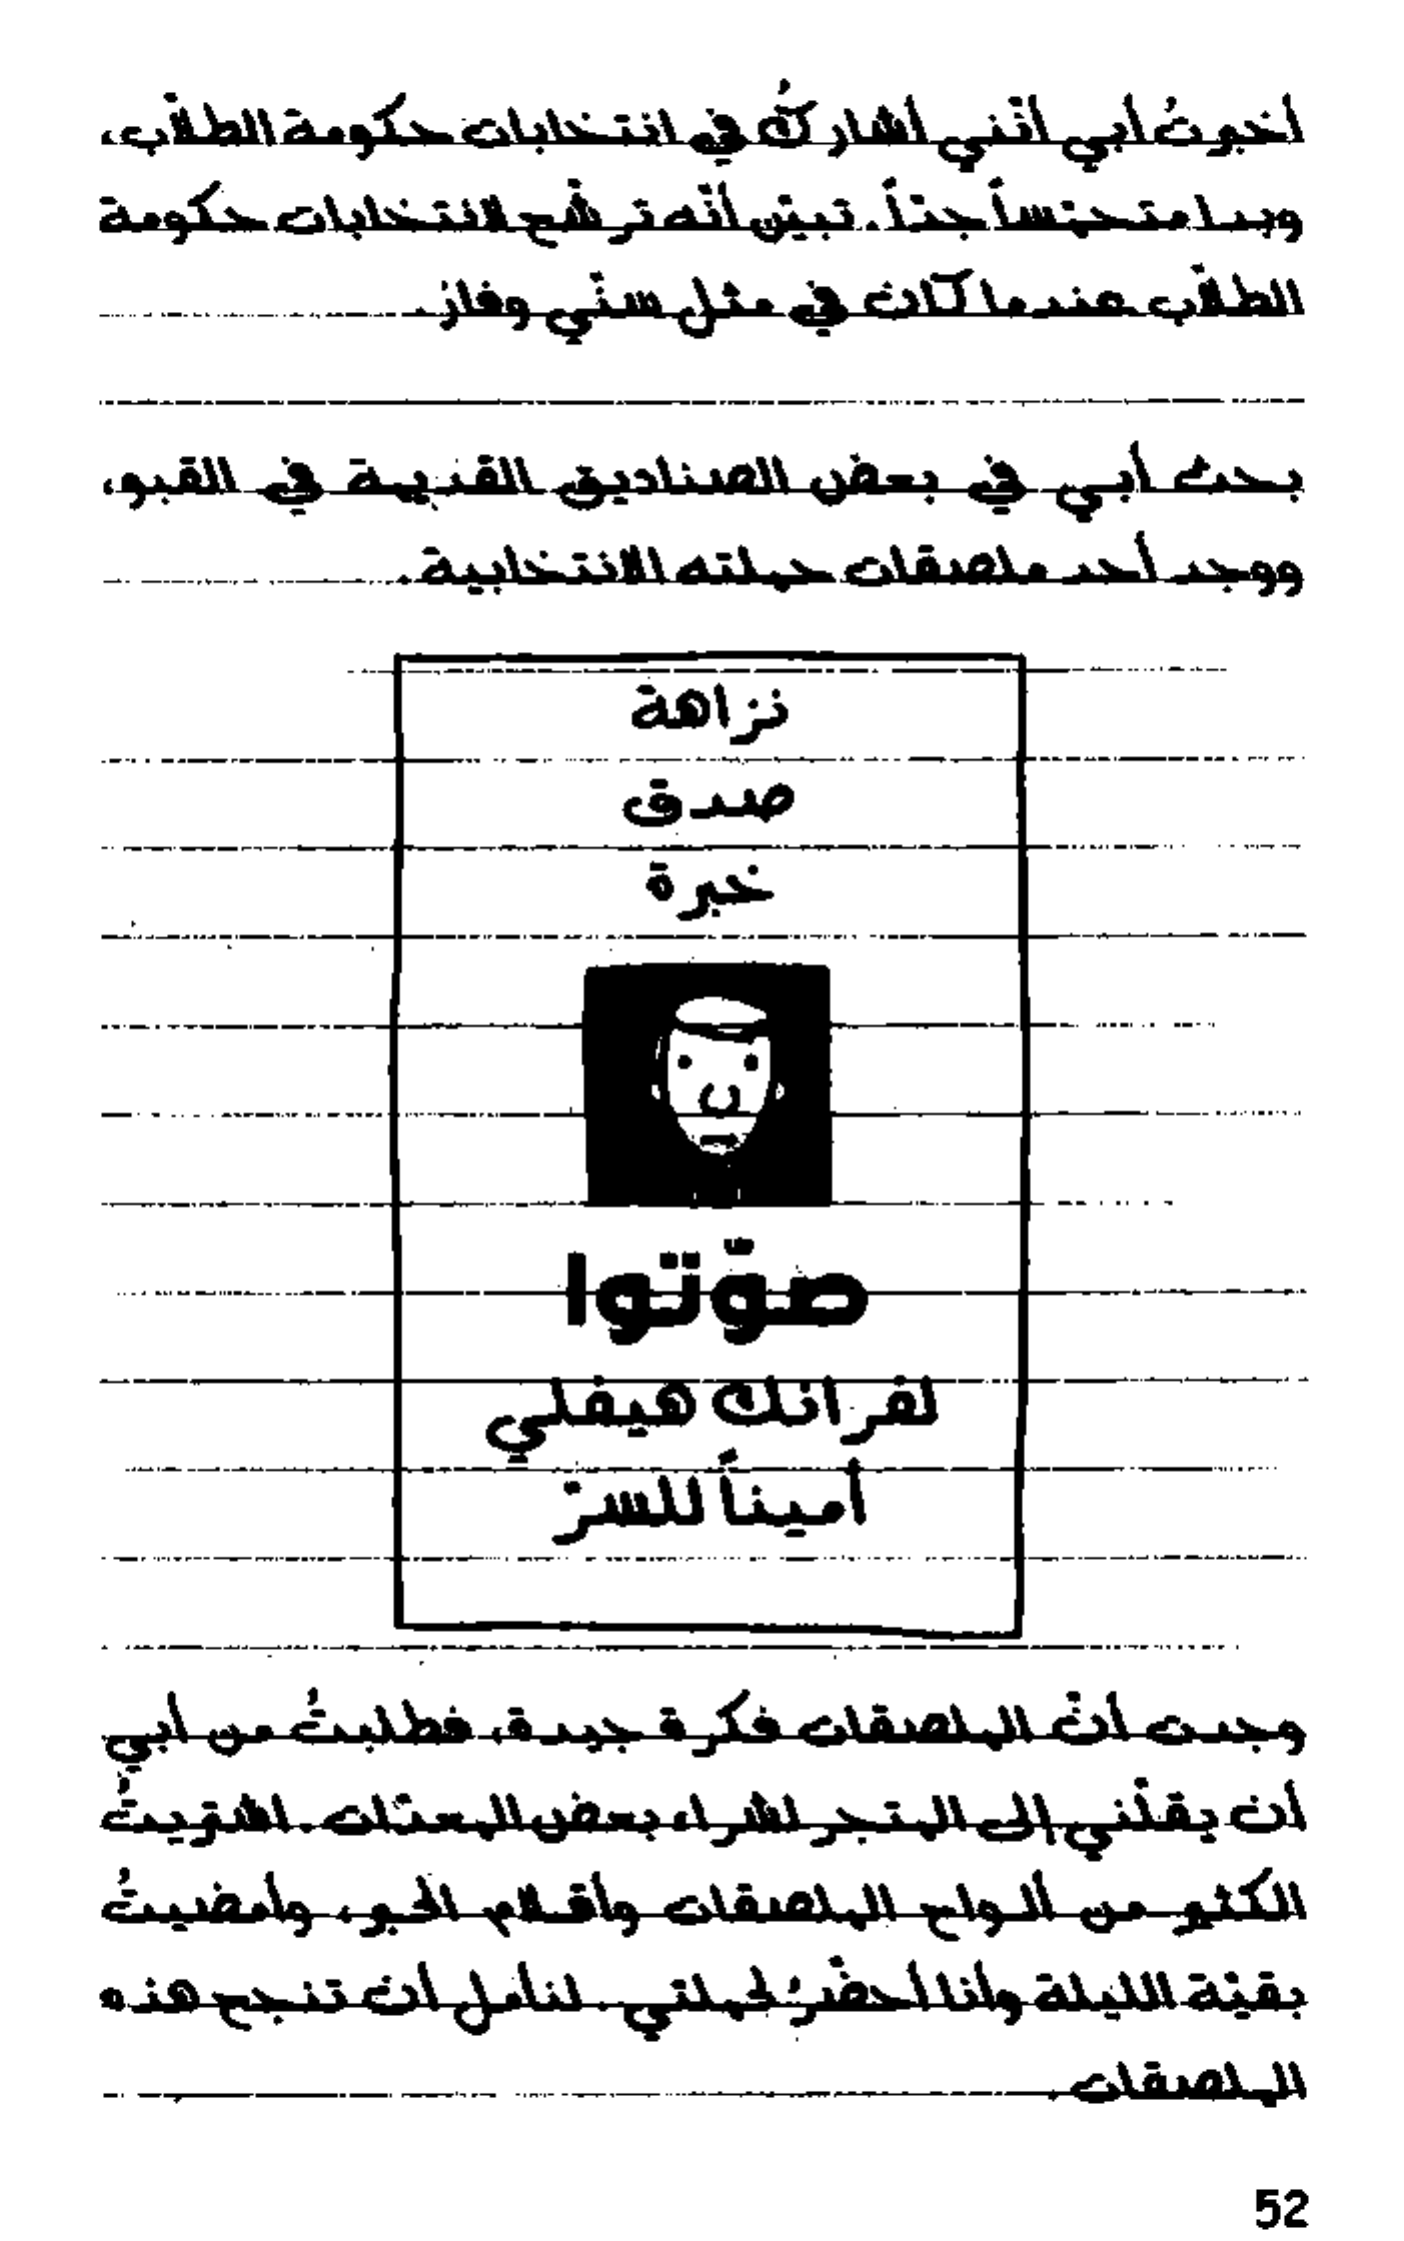 أخبرتُ أبي أنّني أشاركُ في انتخابات حكومة الطلاّب،
وبدا متحمّساً جدّاً. تبيّن أنّه ترشّح لانتخابات حكومة
الطلاّب عندما كان في مثل سنّي وفاز.
بحث أبي في بعض الصناديق القديمة في القبو،
ووجد أحد ملصقات حملته الانتخابية.
نزاهة
صدق
خبرة
صوّتوا
لفرانك هيفلي
أميناً للسرّ
وجدت أنّ الملصقات فكرة جيدة، فطلبتُ من أبي
أن يقلّني إلى المتجر لشراء بعض المعدّات. اشتريتُ
الكثير من ألواح الملصقات وأقلام الحبر، وأمضيتُ
بقيّة الليلة وأنا أحضّرُ لحملتي. لنأمل أن تنجح هذه
الملصقات.
52